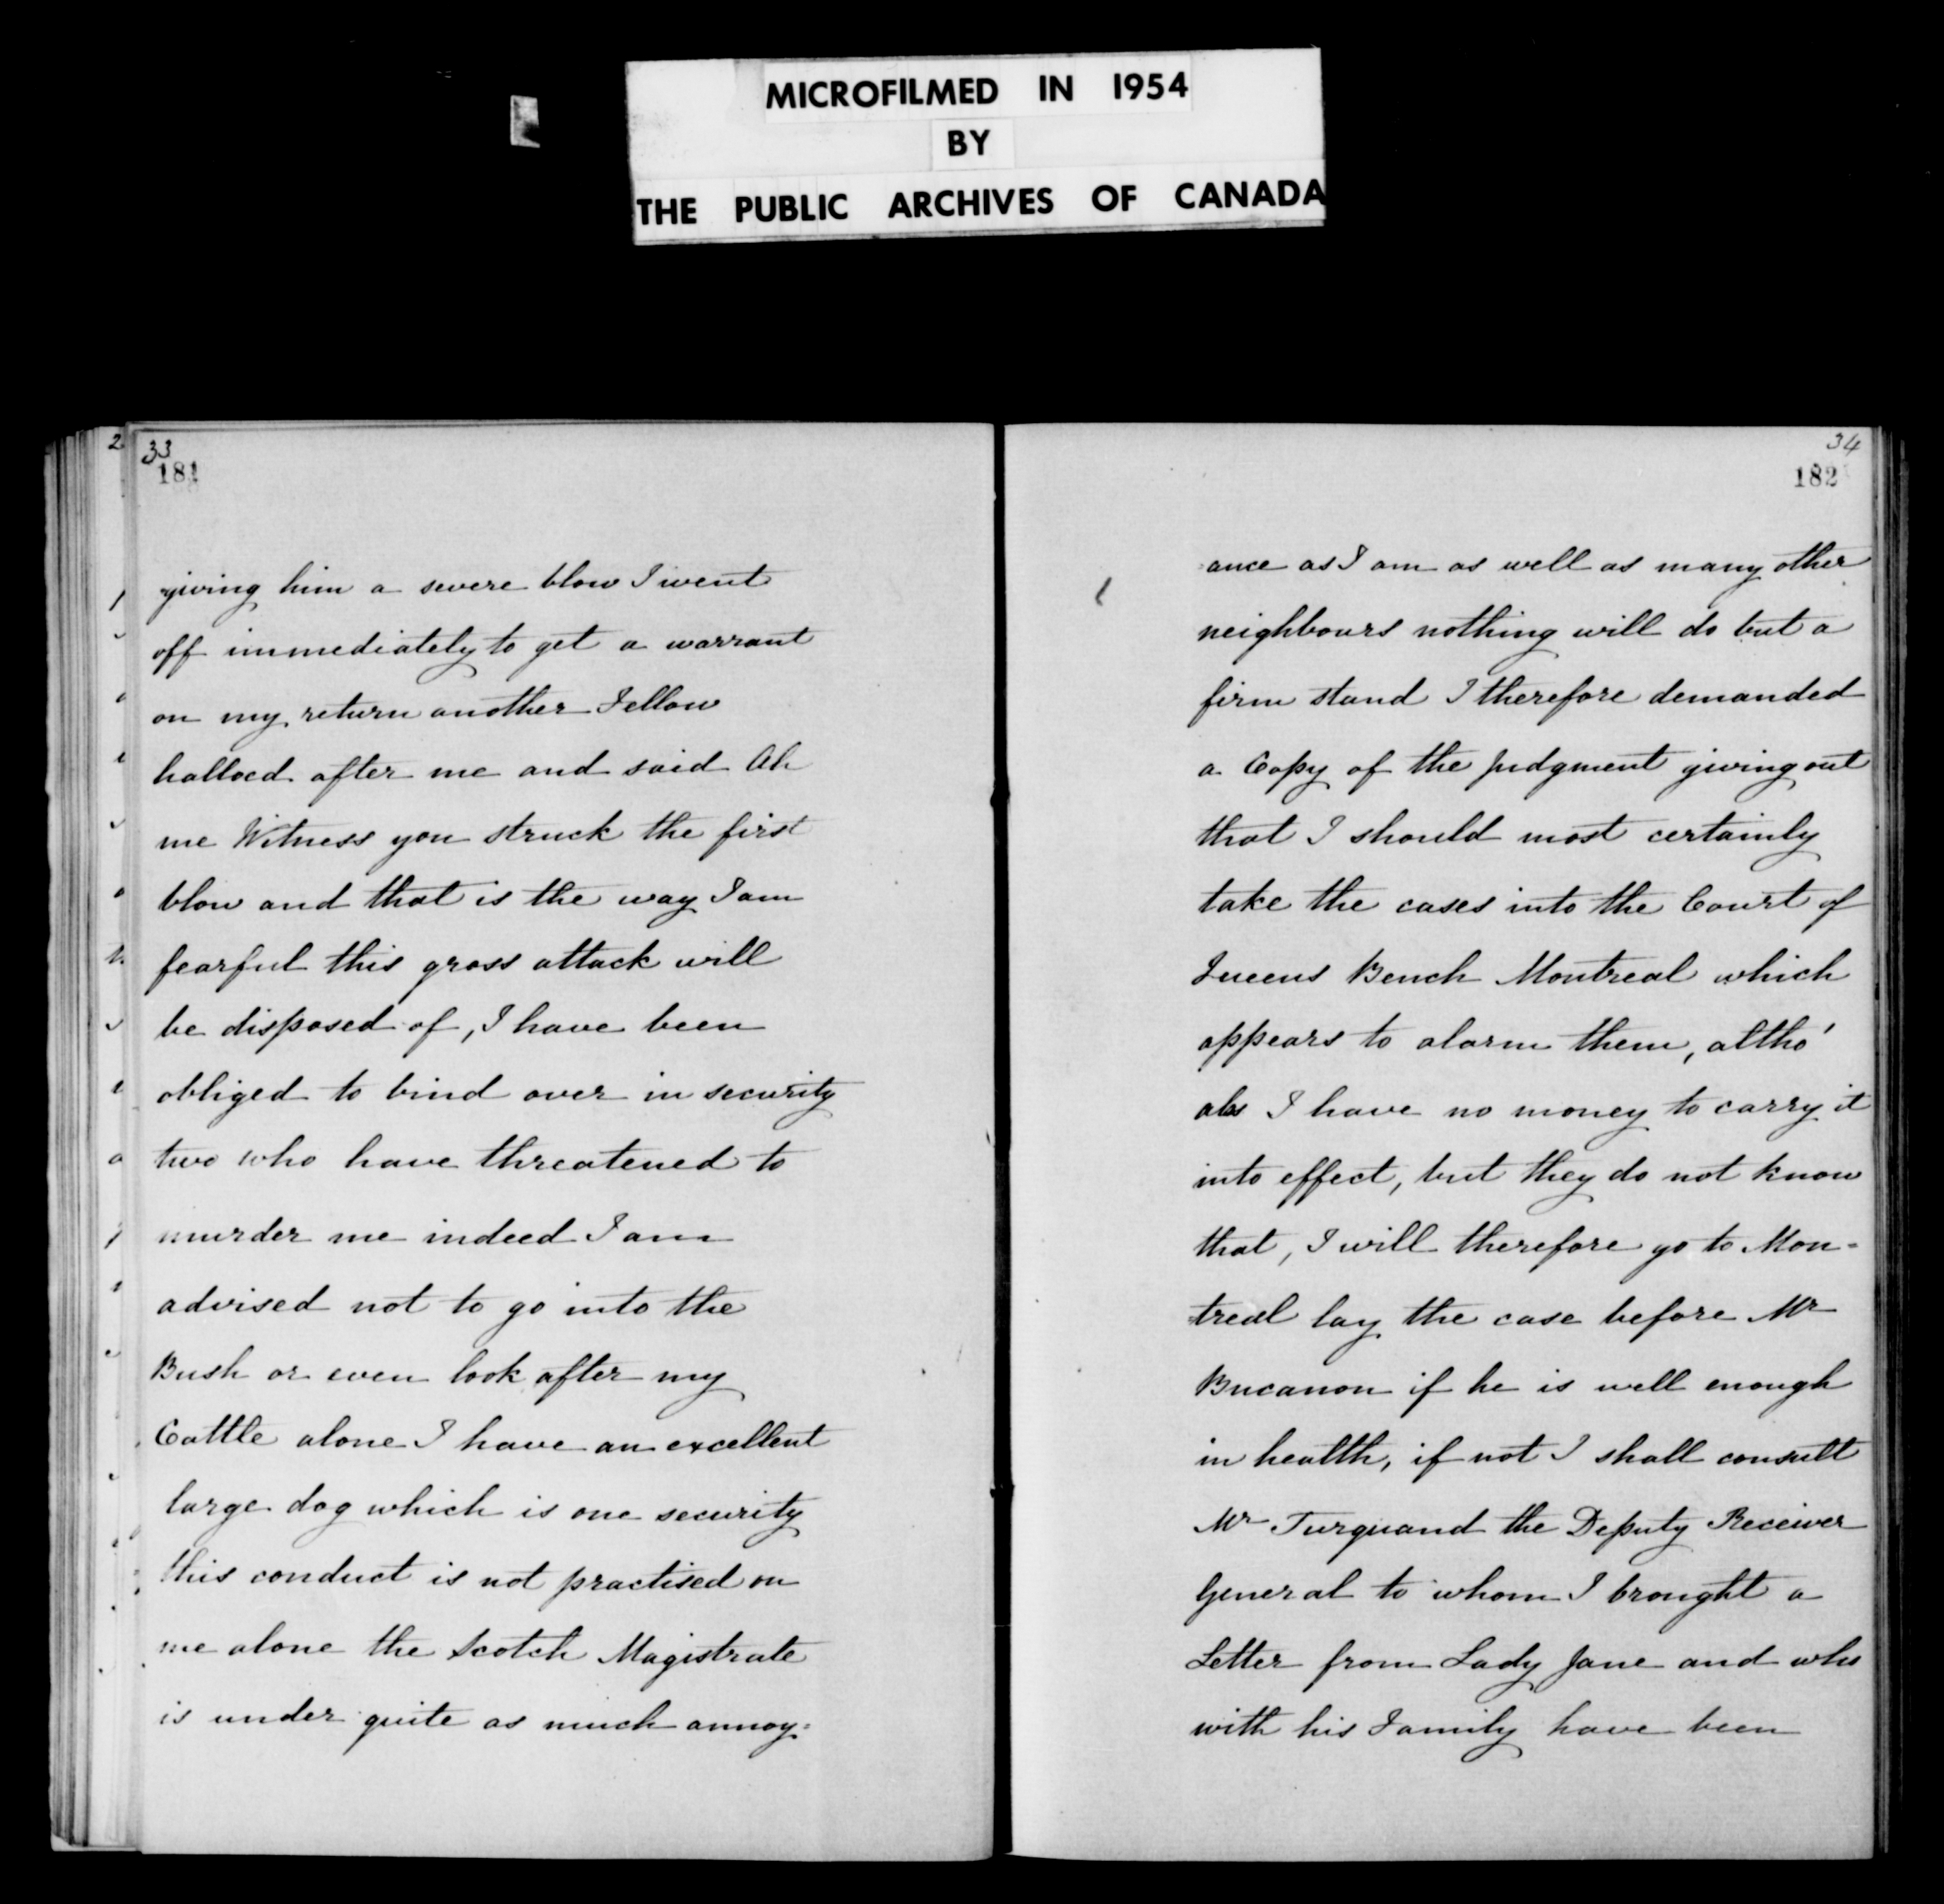 MICROFILMED IN 1954
BY
THE PUBLIC ARCHIVES OF CANADA
33
181
giving him a severe blow I went
off immediately to get a warrant
on my return another Fellow
halloed after me and said Ah
me Witness you struck the first
blow and that is the way I am
fearful this gross attack will
be disposed of, I have been
obliged to bind over in security
two who have threatened to
murder me indeed I am
advised not to go into the
Bush or even look after my
Cattle alone I have an excellent
large dog which is one security
this conduct is not practised on
me alone the Scotch Magistrate
is under quite as much annoy=
34
182
ance as I am as well as many other
neighbours nothing will do but a
firm stand I therefore demanded
a Copy of the Judgment giving out
that I should most certainly
take the cases into the Court of
Queens Bench Montreal which
appears to alarm them, altho'
alas I have no money to carry it
into effect, but they do not know
that, I will therefore go to Mon-
treal lay the case before Mr
Bucanon if he is well enough
in health, if not I shall consult
Mr Turquand the Deputy Receiver
General to whom I brought a
Letter from Lady Jane and who
with his Family have been